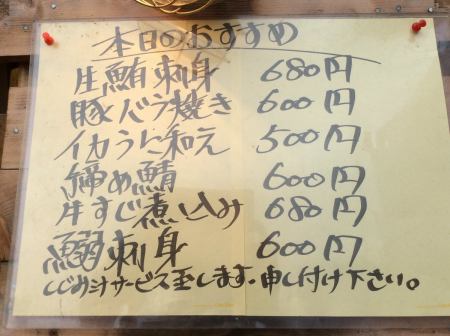 本日のおすすめ
生鮪刺身 680円
豚バラ焼き 600円
イカうに和え 500円
〆め鯖 600円
牛すじ煮込み 680円
鰯刺身 600円
しじみ汁サービス致します。申し付け下さい。